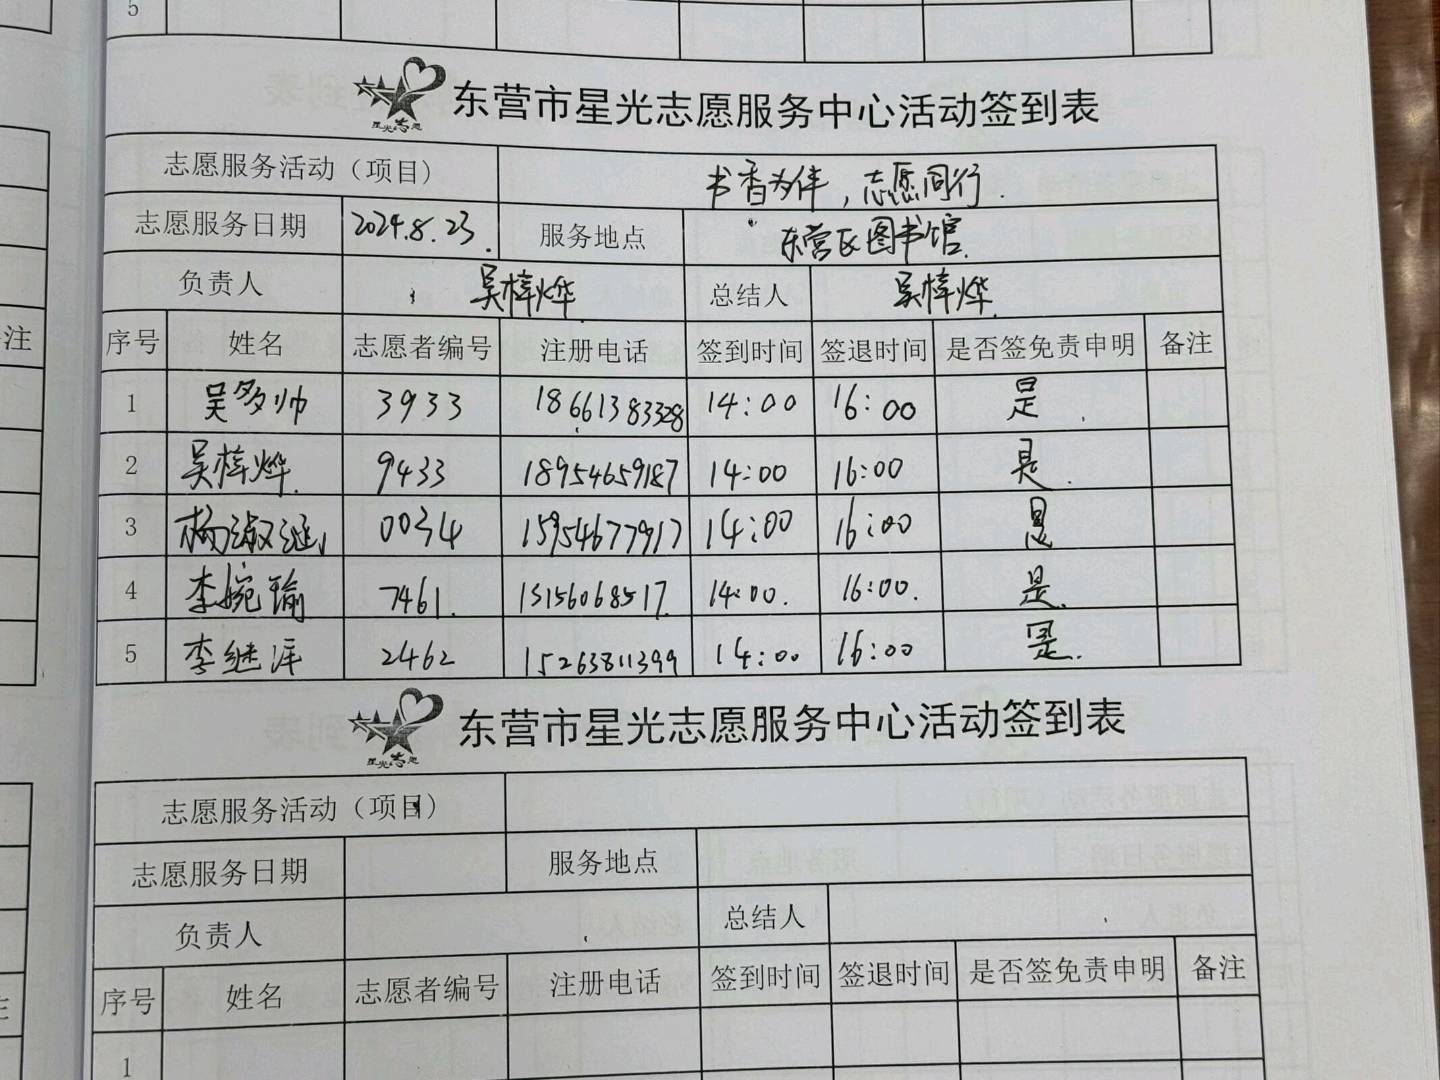 5
星光志愿
东营市星光志愿服务中心活动签到表
志愿服务活动（项目） 书香为伴，志愿同行.
志愿服务日期 2024.8.23. 服务地点 东营区图书馆.
负责人 吴梓烨 总结人 吴梓烨
序号 姓名 志愿者编号 注册电话 签到时间 签退时间 是否签免责申明 备注
1 吴多帅 3933 18661383328 14:00 16:00 是.
2 吴梓烨. 9433 18954659187 14:00 16:00 是.
3 杨淑 0034 15954677917 14:00 16:00 是
4 李婉瑜 7461. 15156068517. 14:00. 16:00. 是.
5 李继洋 2462 15263811399 14:00 16:00 是.
星光志愿
东营市星光志愿服务中心活动签到表
志愿服务活动（项目）
志愿服务日期 服务地点
负责人 总结人
序号 姓名 志愿者编号 注册电话 签到时间 签退时间 是否签免责申明 备注
1
注